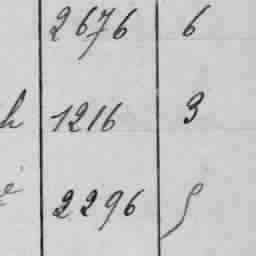 2676 6
h 1216 3
e 2296 5